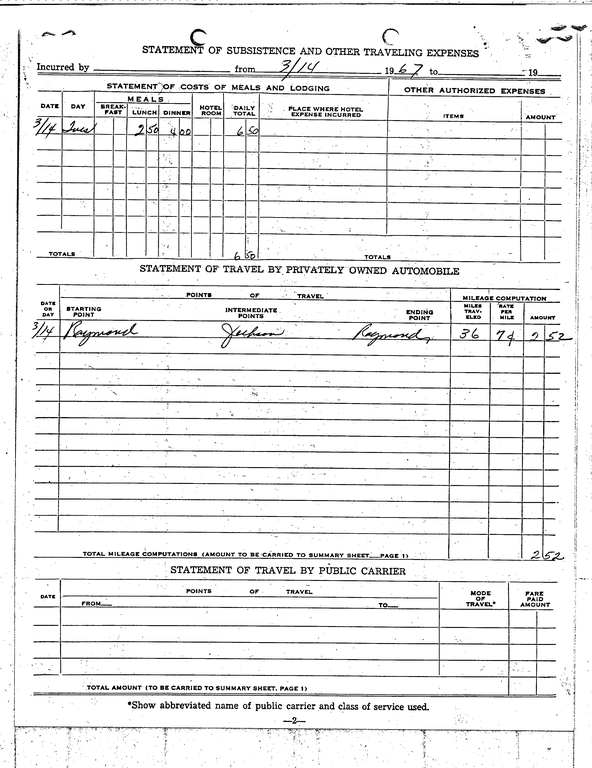 STATEMENT OF SUBSISTENCE AND OTHER TRAVELING EXPENSES
Incurred by from 3/14 1967 to 19
STATEMENT OF COSTS OF MEALS AND LODGING OTHER AUTHORIZED EXPENSES
MEALS
DATE DAY BREAK-FAST LUNCH DINNER HOTEL ROOM DAILY TOTAL PLACE WHERE HOTEL EXPENSE INCURRED ITEMS AMOUNT
3/14 Tues 2 50 4 00 6 50
TOTALS 6 50 TOTALS
STATEMENT OF TRAVEL BY PRIVATELY OWNED AUTOMOBILE
POINTS OF TRAVEL MILEAGE COMPUTATION
DATE OR DAY STARTING POINT INTERMEDIATE POINTS ENDING POINT MILES TRAV-ELED RATE PER MILE AMOUNT
3/14 Raymond Jackson Raymond 36 7¢ 2 52
TOTAL MILEAGE COMPUTATIONS (AMOUNT TO BE CARRIED TO SUMMARY SHEET PAGE 1) 2 52
STATEMENT OF TRAVEL BY PUBLIC CARRIER
DATE POINTS OF TRAVEL MODE OF TRAVEL* FARE PAID AMOUNT
FROM TO
TOTAL AMOUNT (TO BE CARRIED TO SUMMARY SHEET, PAGE 1)
*Show abbreviated name of public carrier and class of service used.
—2—